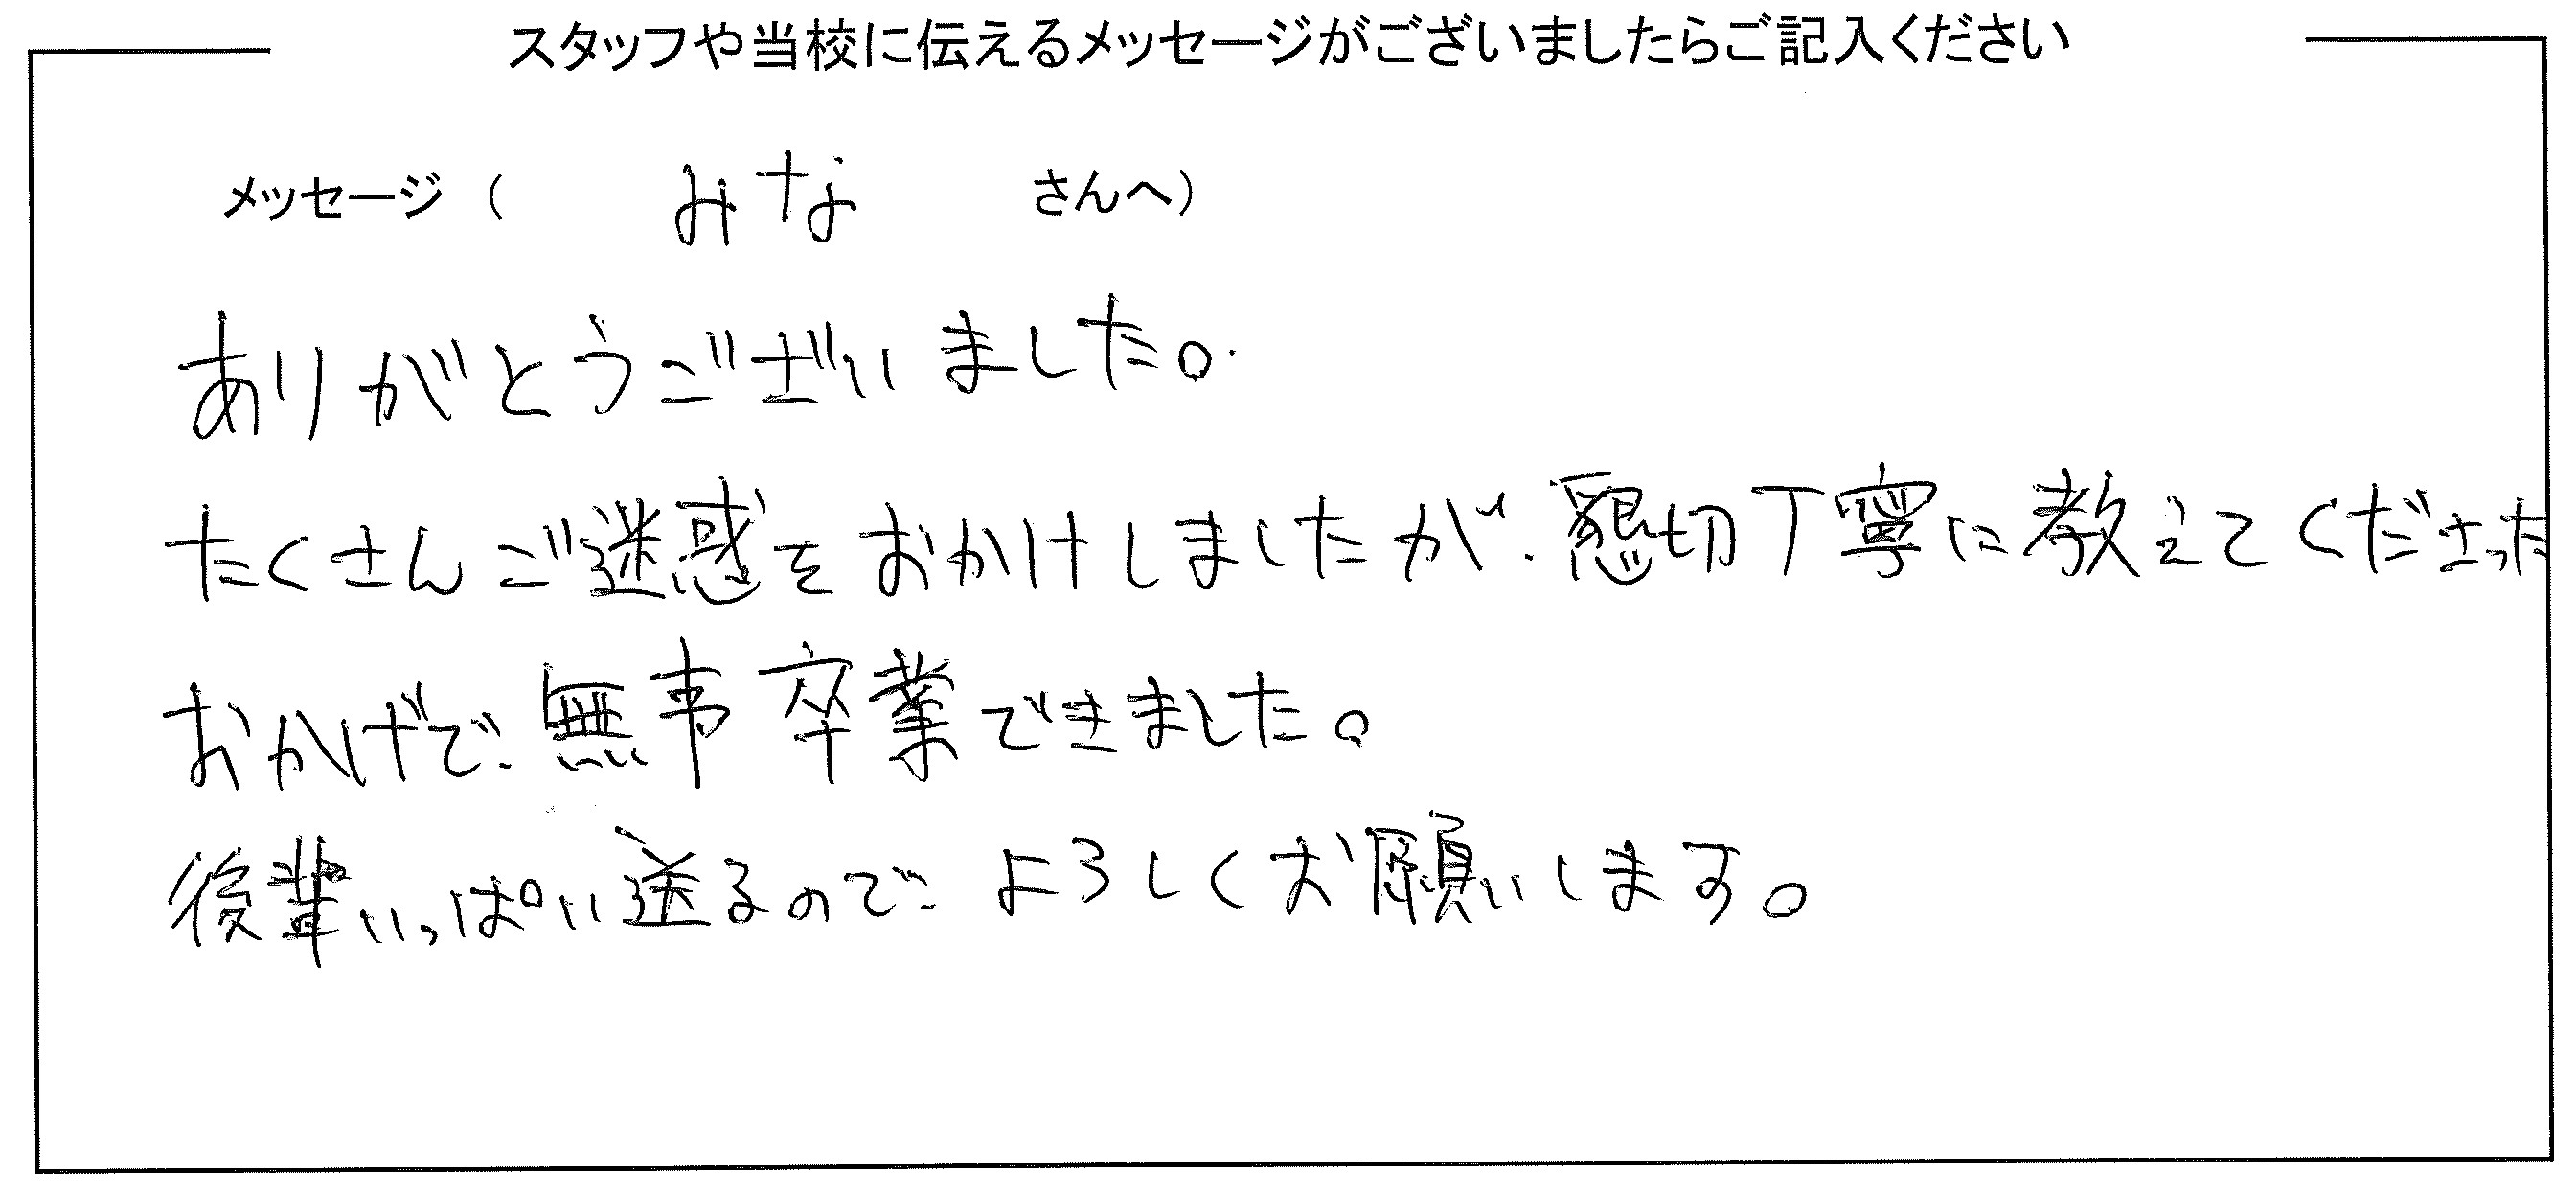 スタッフや当校に伝えるメッセージがございましたらご記入ください
メッセージ（ みな さんへ）
ありがとうございました。
たくさんご迷惑をおかけしましたが、懇切丁寧に教えてくださった
おかげで、無事卒業できました。
後輩いっぱい送るので、よろしくお願いします。